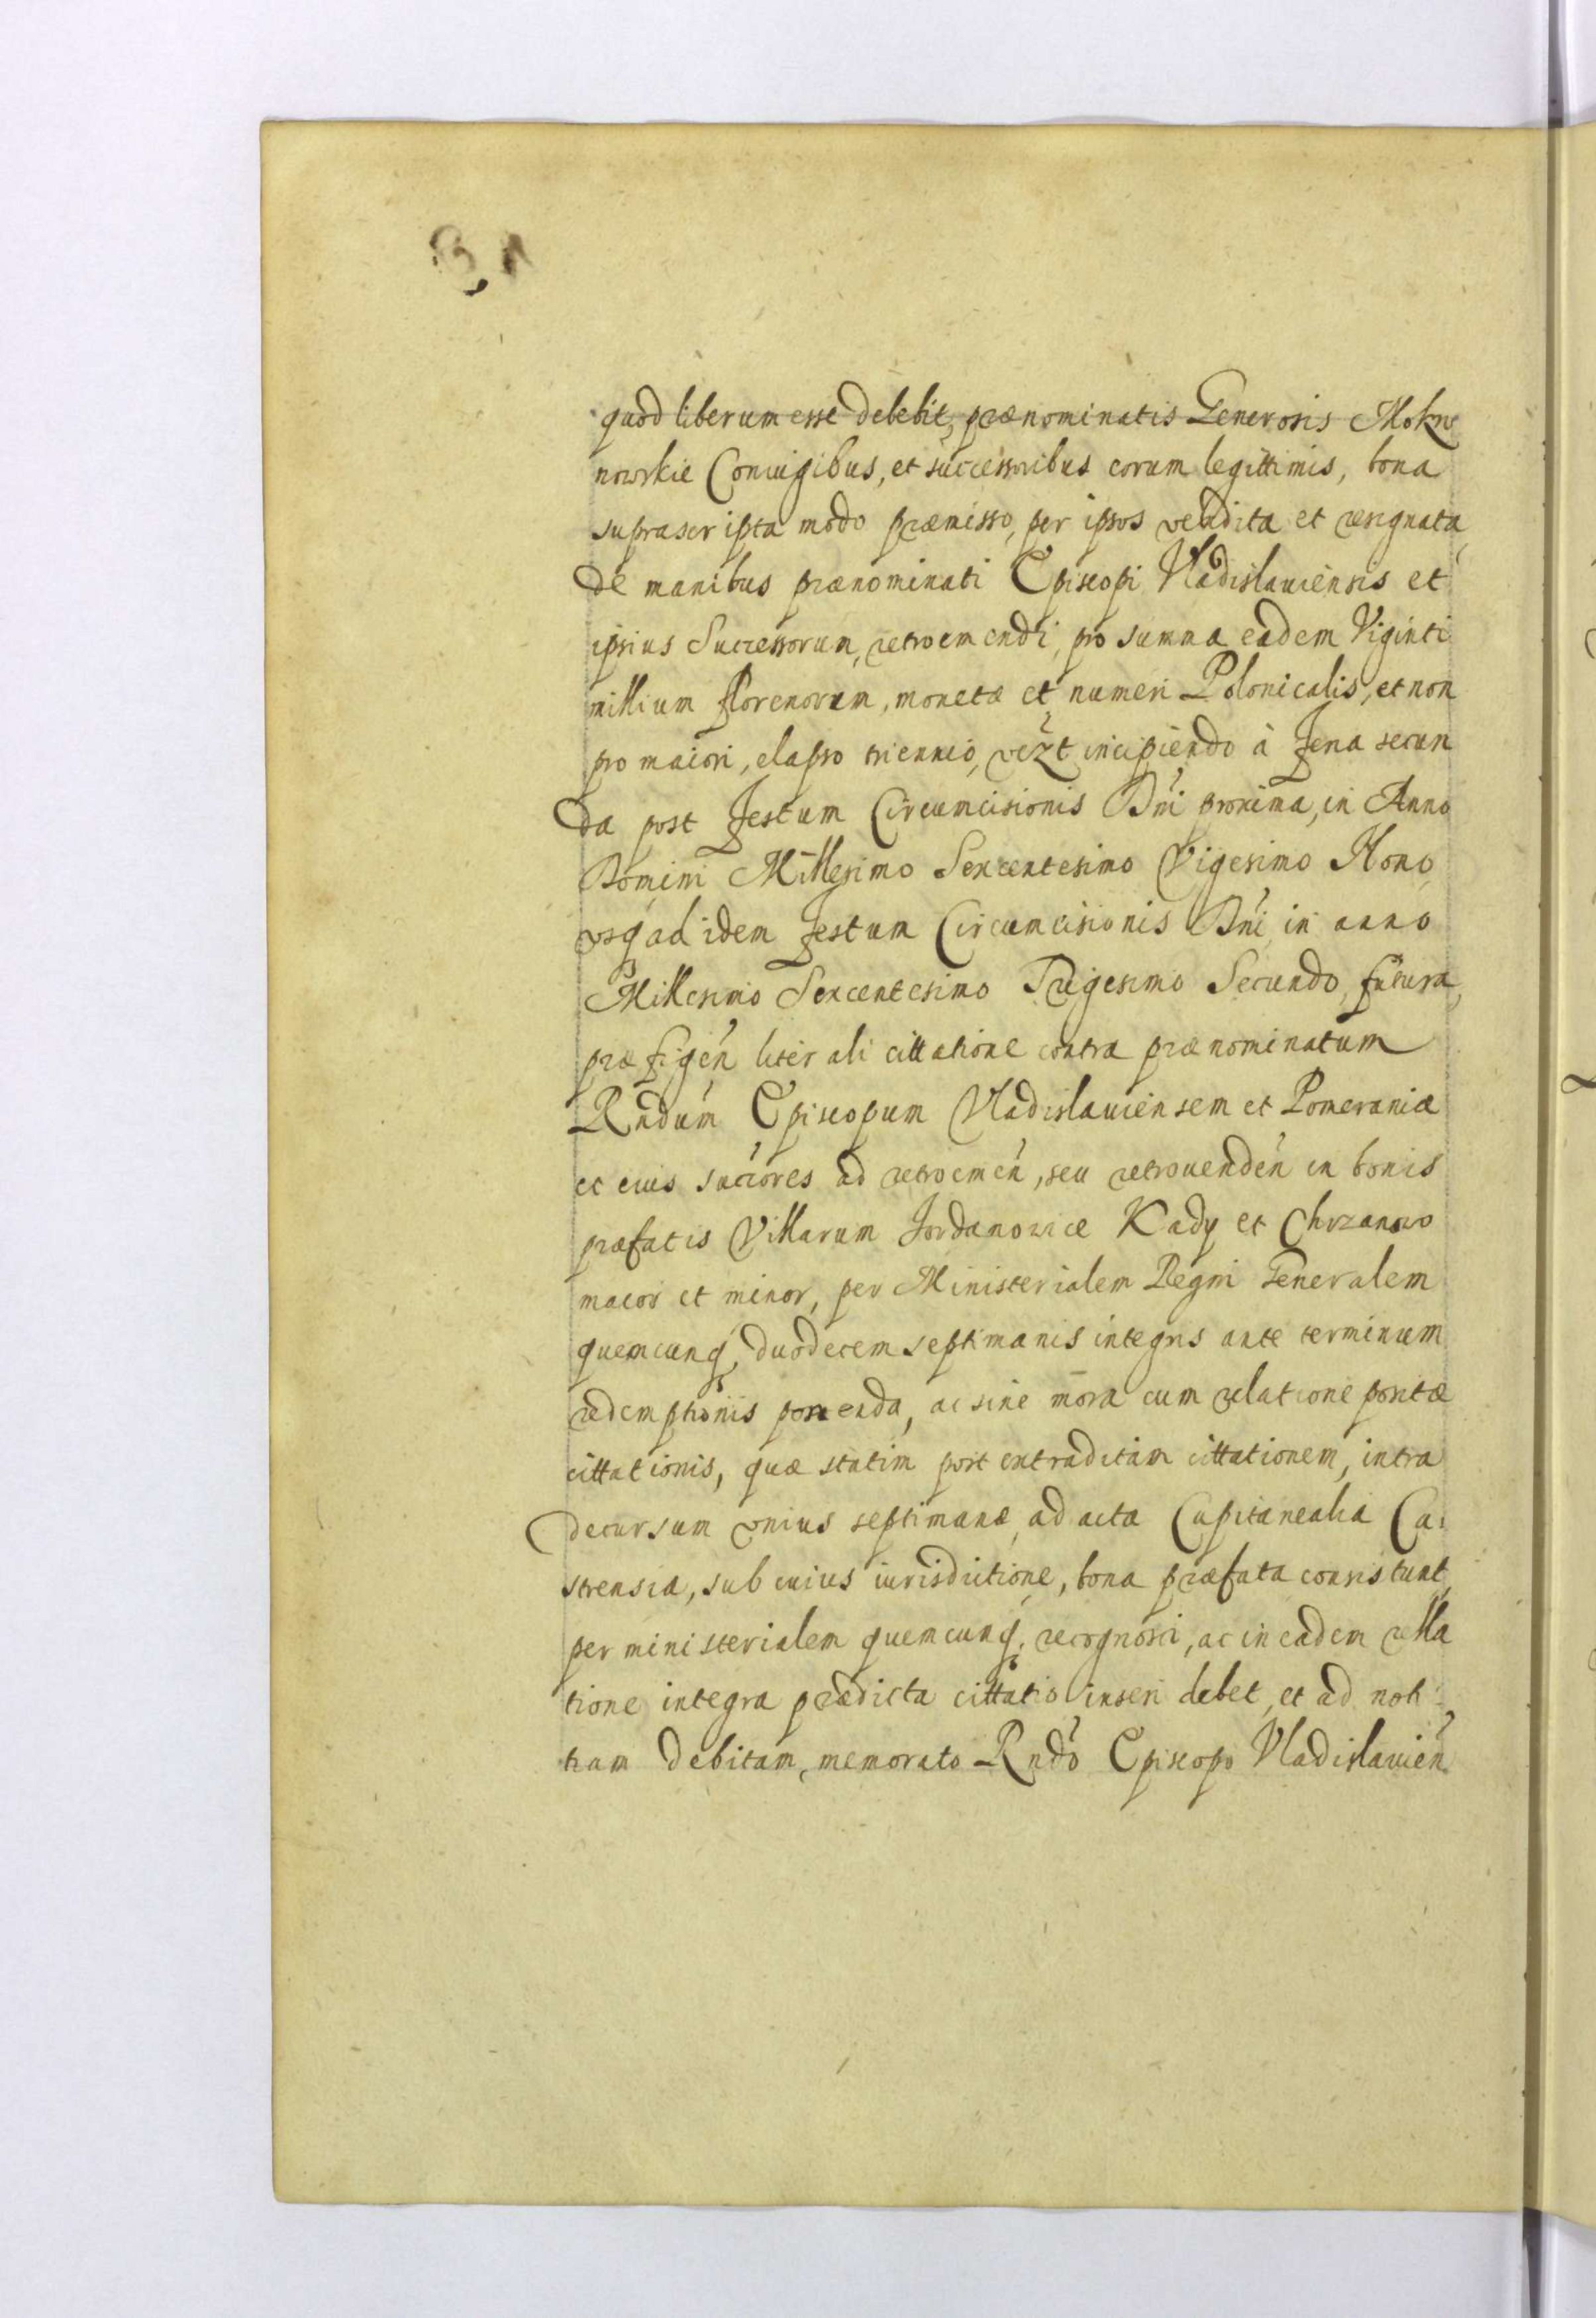 quod liberum esse debebit, prænominatis Generosis Mokro
nowskie Coniugibus, et successoribus eorum legittimis, bona
suprascripta modo præmisso, per ipsos vendita et resignata,
de manibus prænominati Episcopi Vladislauiensis et
ipsius Successorum, retroemendi, pro summa eadem Viginti
millium florenorum, monetæ et numeri Polonicalis, et non
pro maiori, elapso triennio, vezt incipiendo à feria secun
da post festum Circumcisionis Dni proxima, in Anno
Domini Millesimo Sexcentesimo Vigesimo Nono
vsq ad idem festum Circumcisionis Dni in anno
Millesimo Sexcentesimo Trigesimo Secundo, futura,
præfigen literali cittatione contra prænominatum
Rndum Episcopum Vladislauiensem et Pomeraniæ
et eius succores ad retroemen, seu retrouenden in bonis
præfatis Villarum Jordanowice Kady et Chrzanowo
maior et minor, per Ministerialem Regni Generalem
quemcunq, duodecem septimanis integris ante terminum
redemptionis ponenda, ac sine mora cum relatione positæ
cittationis, quæ statim post extraditam cittationem, intra
decursum vnius septimanæ, ad acta Capitanealia Ca:
strensia, sub cuius iurisdictione, bona præfata consistunt,
per ministerialem quemcunq, recognosci, ac in eadem rella
tione integra prædicta cittatio inseri debet, et ad noti
tiam debitam, memorato Rndo Episcopo Vladislauien